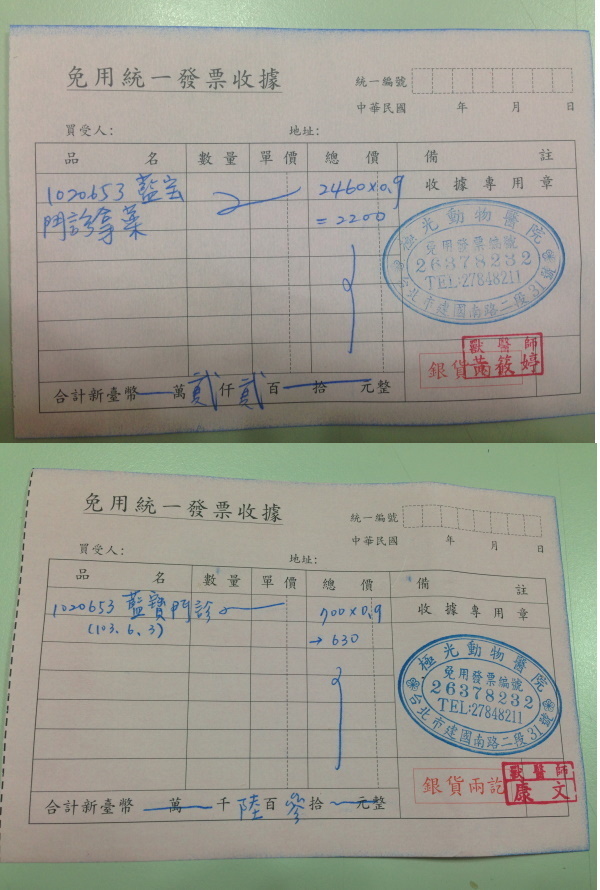 免用統一發票收據
統一編號
中華民國 年 月 日
買受人: 地址:
品 名 數量 單價 總 價 備 註
1020653 藍宝 2460x0.9 收據專用章
門診拿藥 =2200
極光動物醫院
免用發票編號
26378232
TEL:27848211
台北市建國南路二段31號
獸醫師
銀貨 筱婷
合計新臺幣 萬貳仟貳百 拾 元整
免用統一發票收據
統一編號
中華民國 年 月 日
買受人: 地址:
品 名 數量 單價 總 價 備 註
1020653 藍寶門診 700x0.9 收據專用章
(103.6.3) → 630
極光動物醫院
免用發票編號
26378232
TEL:27848211
台北市建國南路二段31號
獸醫師
銀貨兩訖 康文
合計新臺幣 萬 千陸百參拾 元整